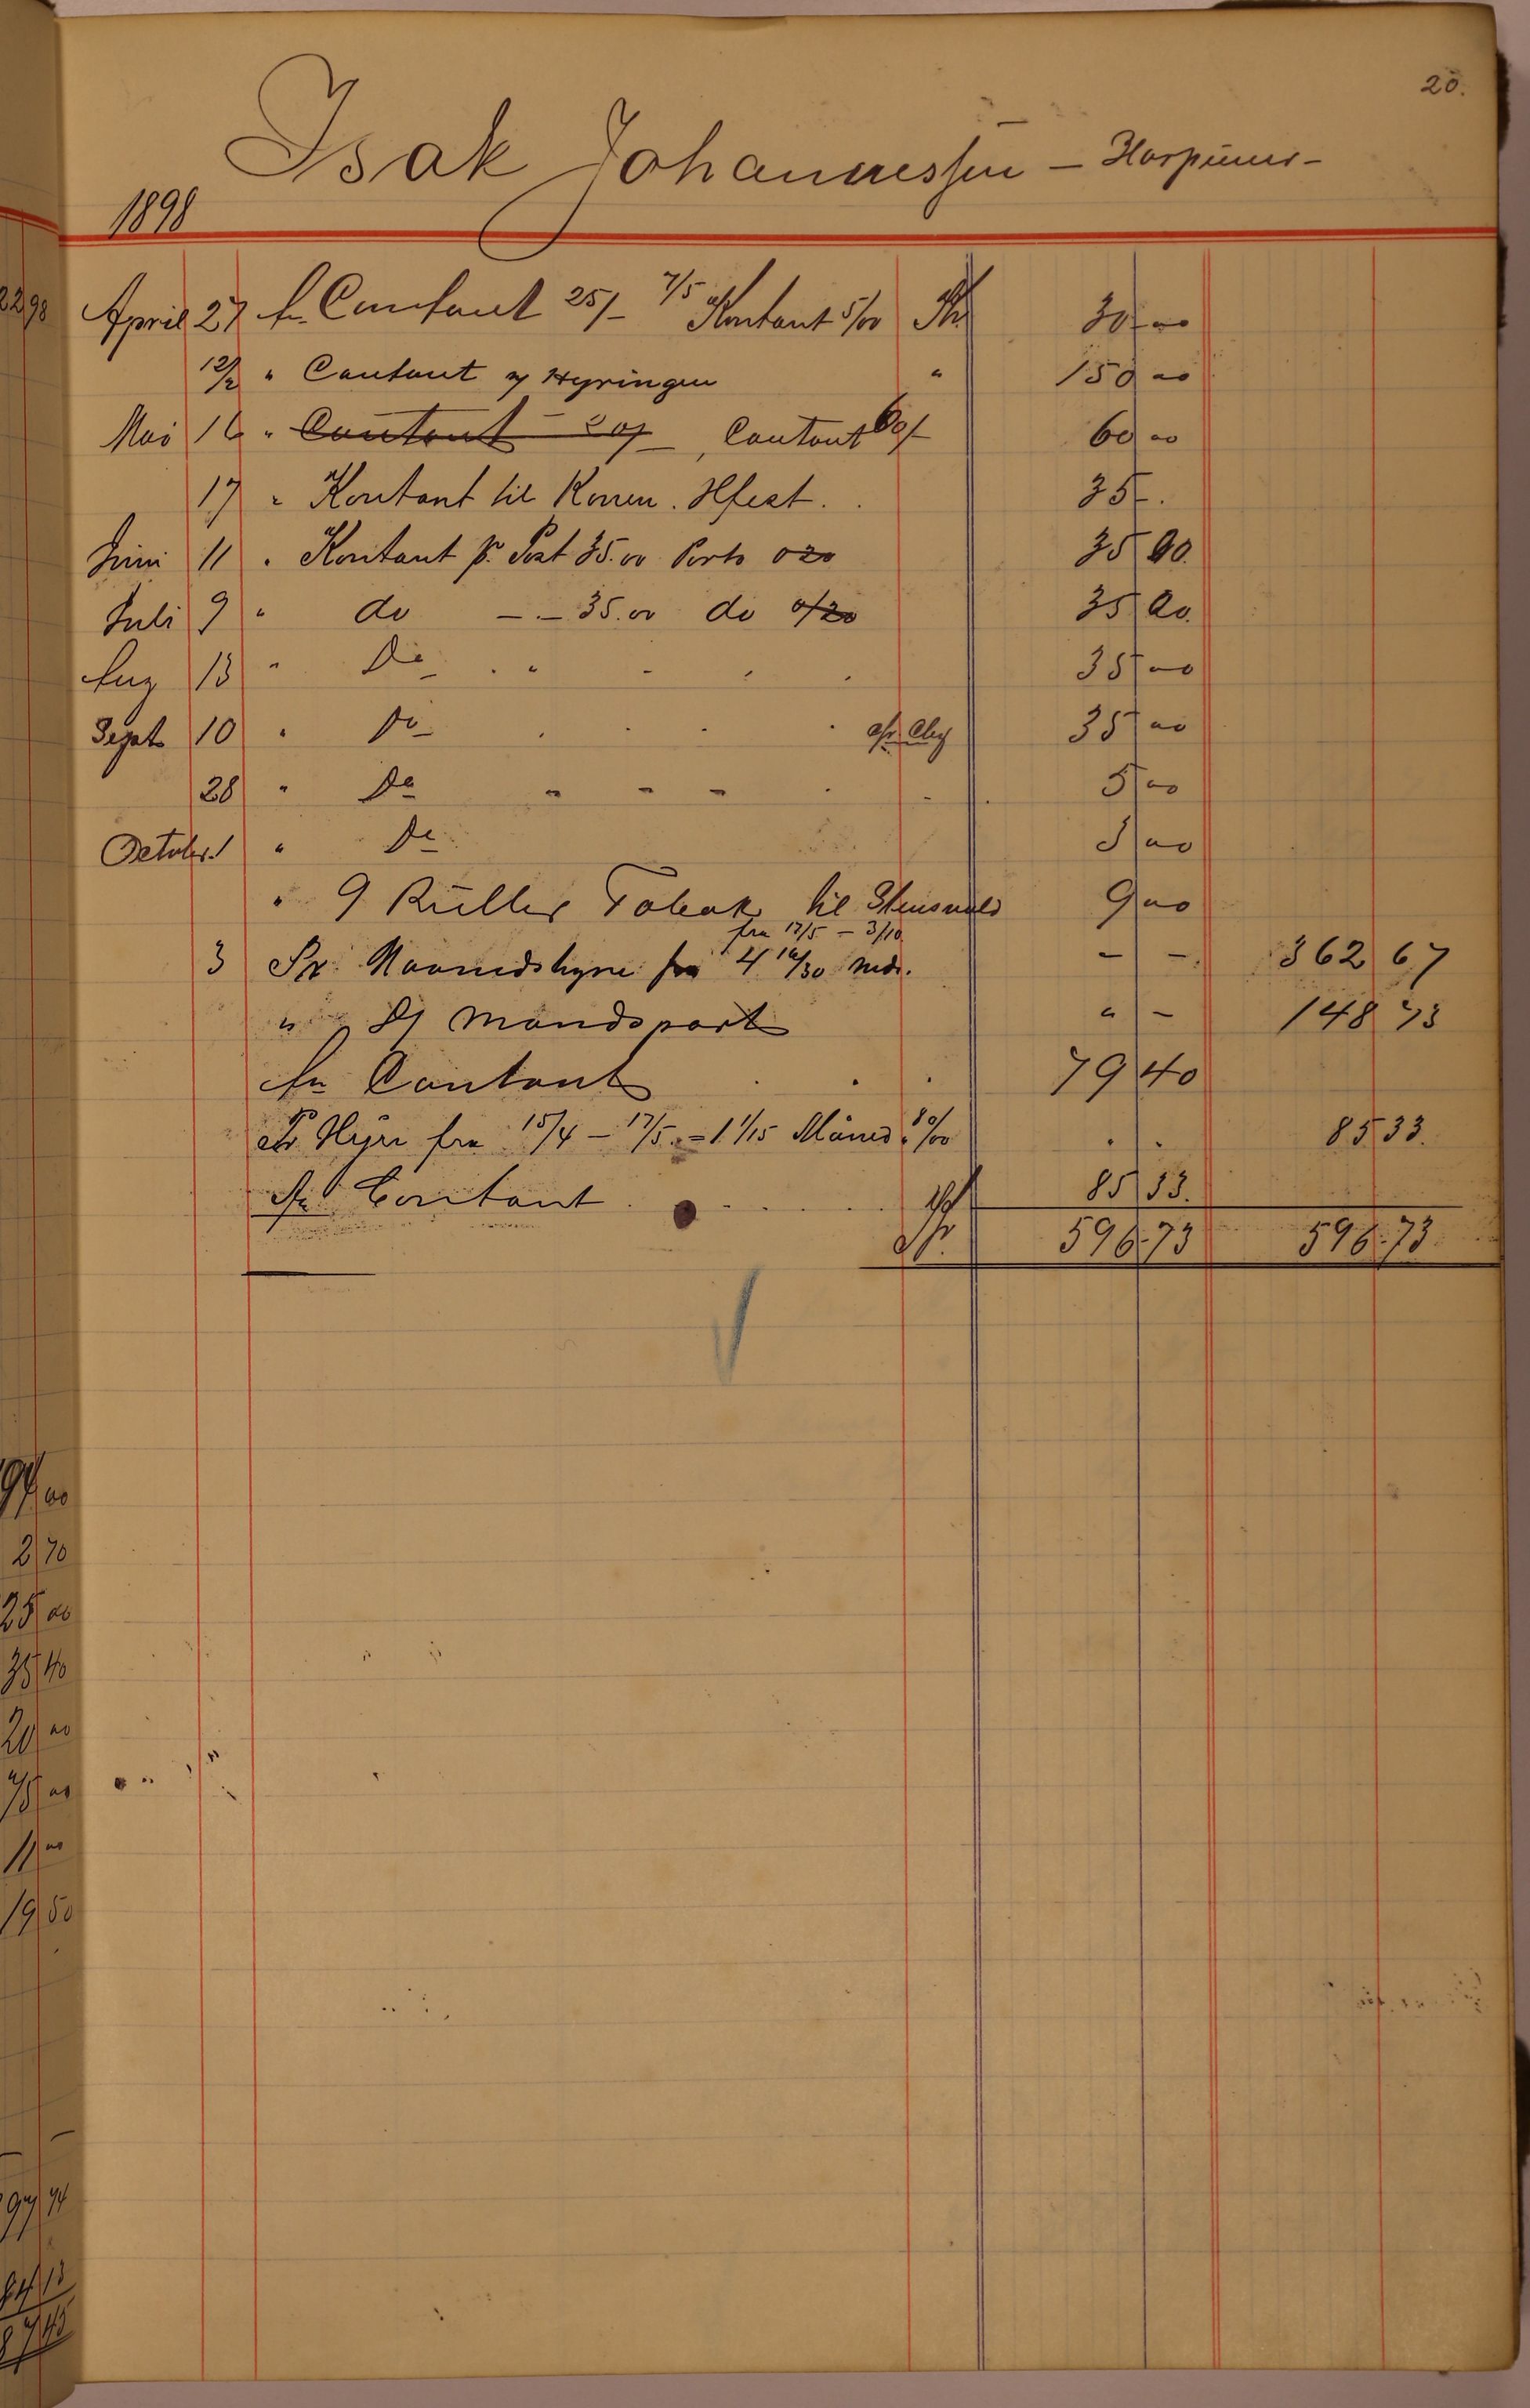 20.
Isak Johannessen – Harpuner –
1898
April 27 fr. Contant 25/– 7/5 Kontant 5/00 Kr 30 00
12/2 " Contant v Hyringen " 150 00
Mai 16 " Contant – 20/– , Contant 60/– 60 00
17 " Kontant til Konen . 35 – .
Juni 11 " Kontant pr. Post 35.00 Porto 0 20 35 00.
Juli 9 " do – . – 35.00 do 0/20 35 00.
Aug 13 " Do " 35 00
Sept. 10 " Do 35 00
28 " Do " 5 00
October 1 " Do 5 00
" 9 Ruller Tobak til 9 00
fra 17/5 – 3/10
3 Pr. Maanedshyre fra 4 16/30 Mdr. – – 362 67
" 51 Mandspart " – 148 73
fr. Contant 79 40
Pr Hyre fra 15/4 – 17/5 = 1 1/15 Måned 80/00 . . 85 33.
fr. Contant 85 33.
Kr. 596.73 596.73
2 98
97 00
2 70
25 00
35 40
20 00
75 00
11 00
19 50
97 74